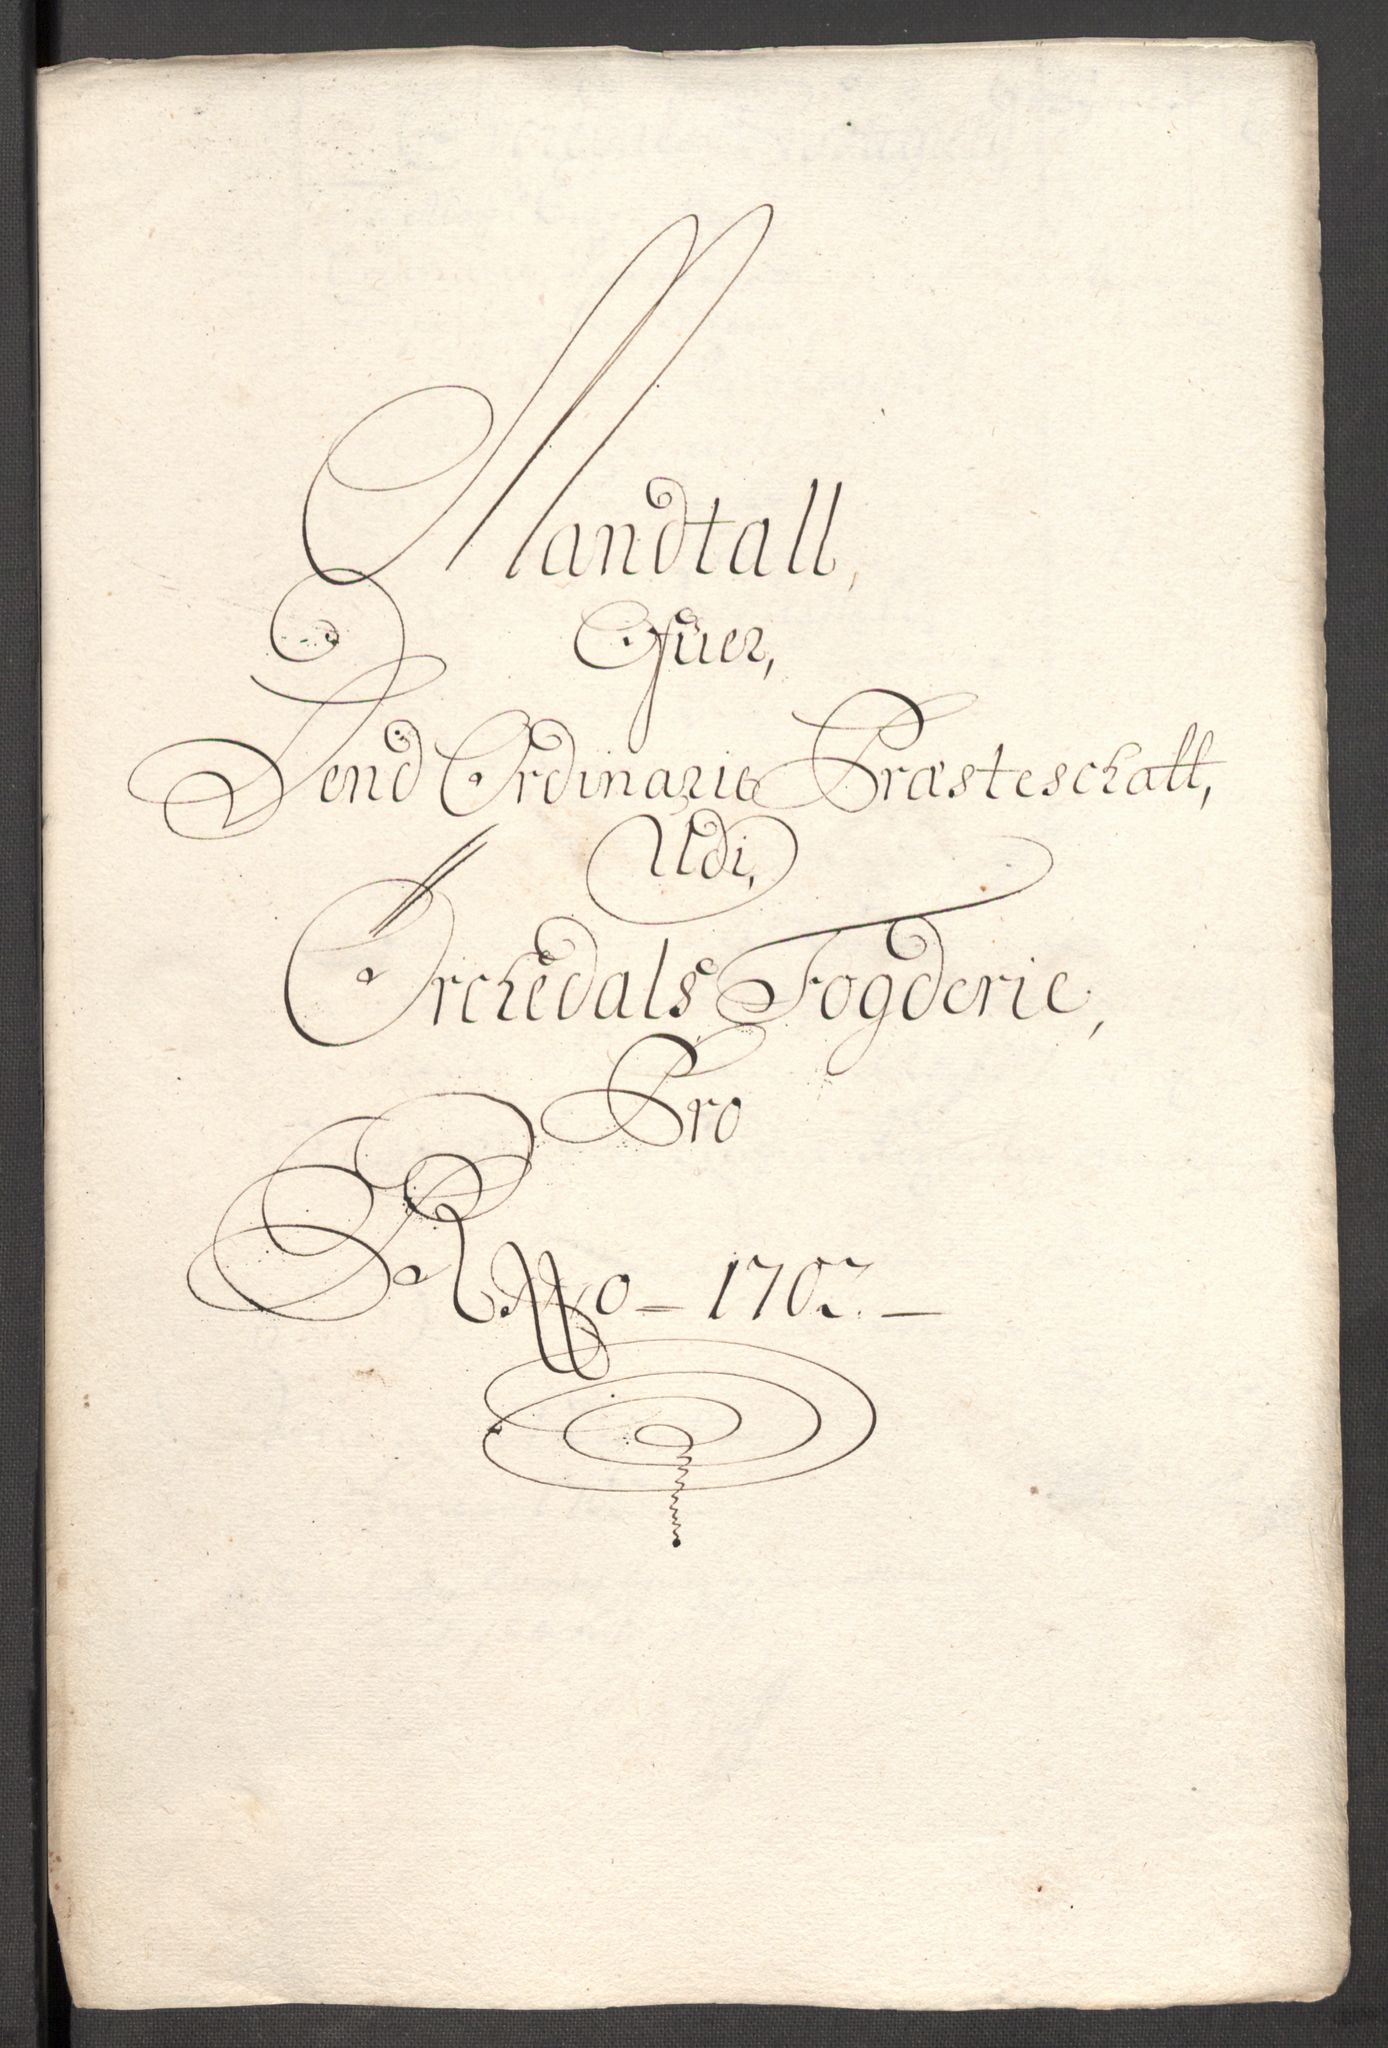 Mandtall,
Ofuer,
Dend Ordinarie Præsteschatt,
Udi,
Orchedals Fogderie,
Pro
Anno - 1702 -